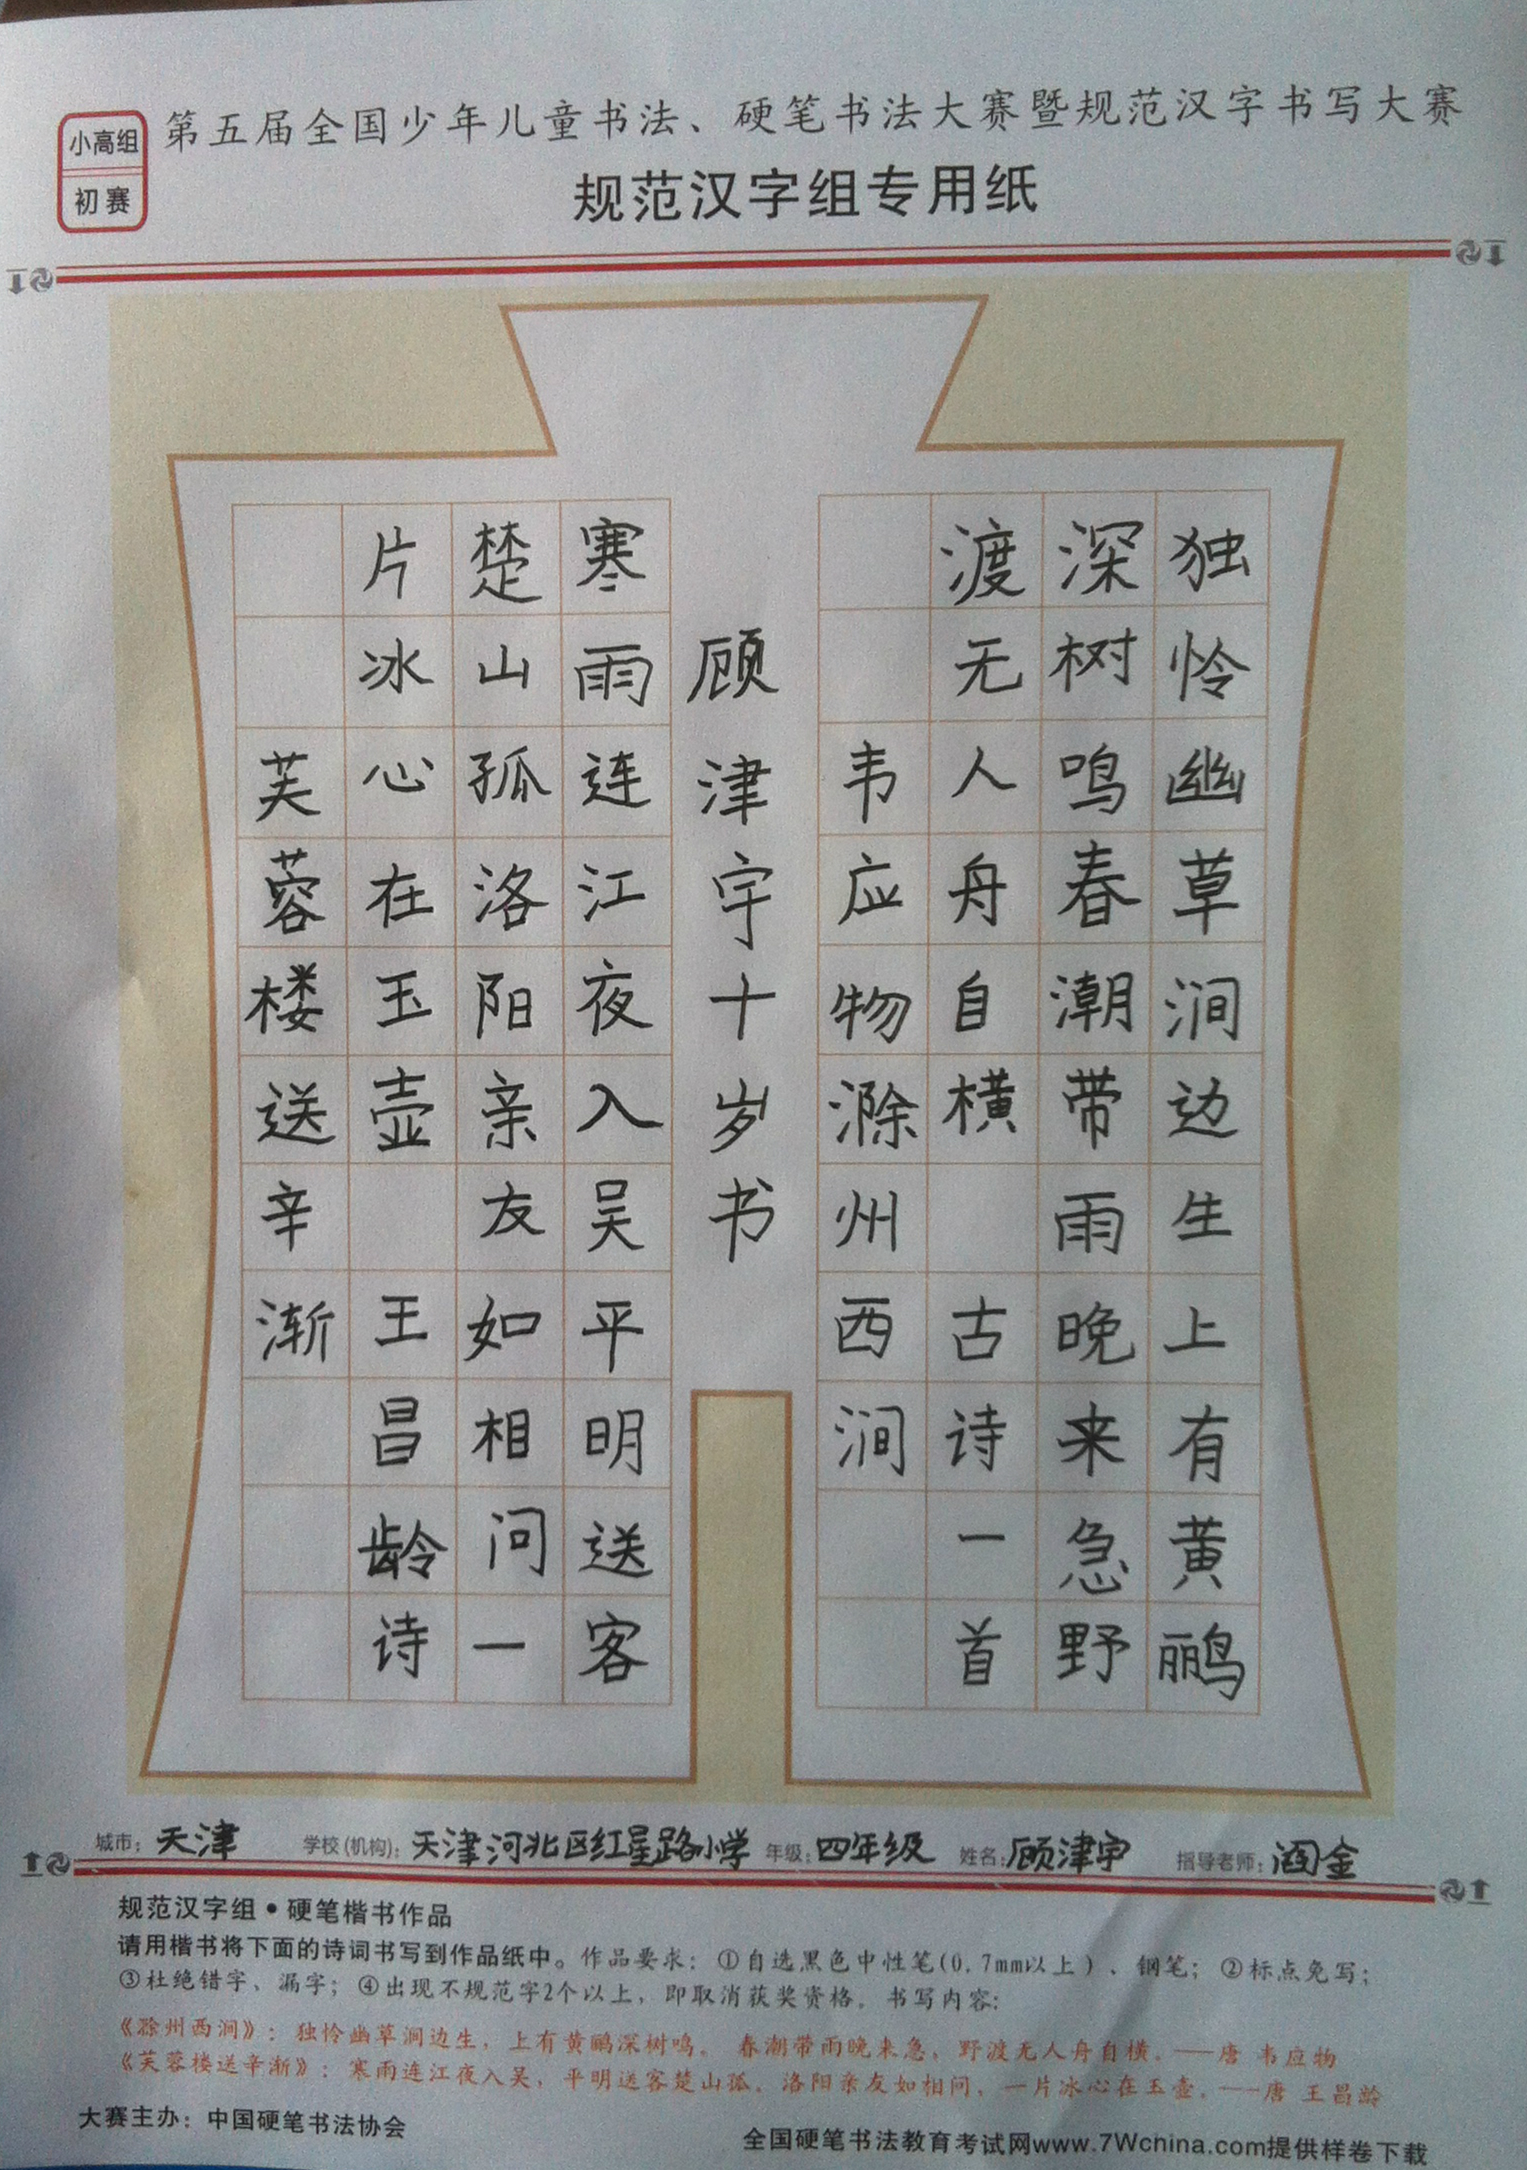 小高组
初赛
第五届全国少年儿童书法、硬笔书法大赛暨规范汉字书写大赛
规范汉字组专用纸
独怜幽草涧边生上有黄鹂
深树鸣春潮带雨晚来急野
渡无人舟自横 古诗一首
韦应物滁州西涧
顾津宇十岁书
寒雨连江夜入吴平明送客
楚山孤洛阳亲友如相问一
片冰心在玉壶 王昌龄诗
芙蓉楼送辛渐
城市：天津 学校(机构)：天津河北区红星路小学 年级：四年级 姓名：顾津宇 指导老师：阎金
规范汉字组•硬笔楷书作品
请用楷书将下面的诗词书写到作品纸中。作品要求：①自选黑色中性笔(0.7mm以上）、钢笔；②标点免写；
③杜绝错字、漏字；④出现不规范字2个以上，即取消获奖资格。书写内容:
《滁州西涧》：独怜幽草涧边生，上有黄鹂深树鸣。春潮带雨晚来急，野渡无人舟自横。——唐 韦应物
《芙蓉楼送辛渐》：寒雨连江夜入吴，平明送客楚山孤。洛阳亲友如相问，一片冰心在玉壶。——唐 王昌龄
大赛主办：中国硬笔书法协会
全国硬笔书法教育考试网www.7Wchina.com提供样卷下载